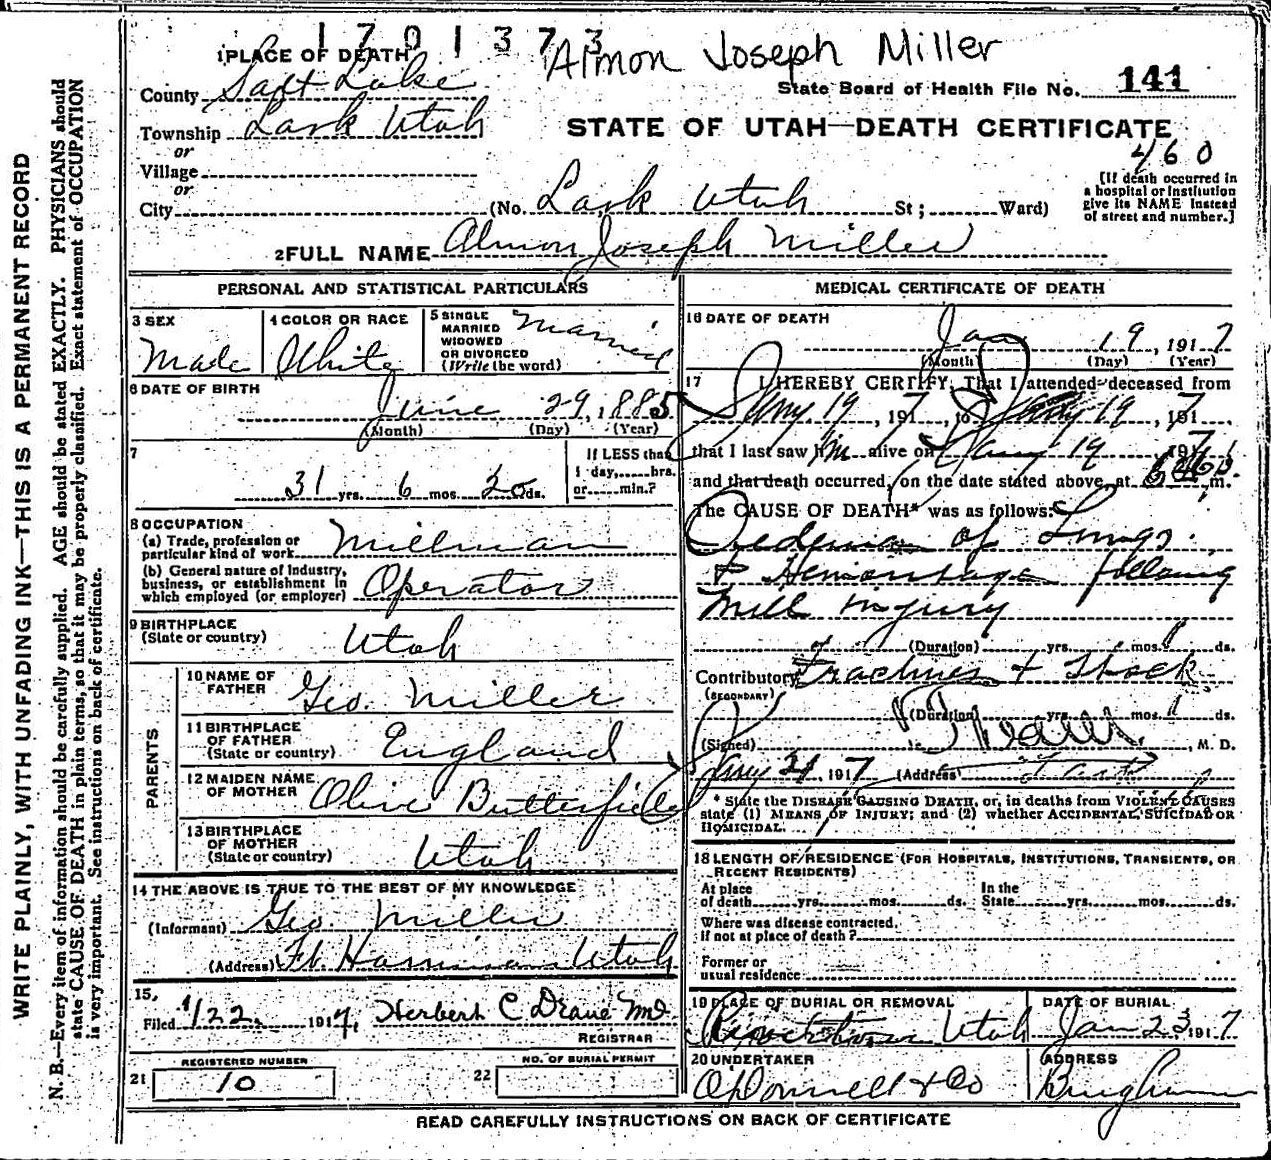 1701373
Almon Joseph Miller
1 PLACE OF DEATH
County Salt Lake
State Board of Health File No. 141
Township Lark Utah
STATE OF UTAH—DEATH CERTIFICATE
or
Village
460
or
City (No. Lark Utah St; Ward)
[If death occurred in
a hospital or institution
give its NAME instead
of street and number.]
2 FULL NAME Almon Joseph Miller
PERSONAL AND STATISTICAL PARTICULARS
3 SEX
Male
4 COLOR OR RACE
White
5 SINGLE
MARRIED
WIDOWED
OR DIVORCED
(Write the word)
Married
6 DATE OF BIRTH
June 29, 1885
(Month) (Day) (Year)
7
31 yrs. 6 mos. 20 ds.
If LESS than
1 day, hrs.
or min.?
8 OCCUPATION
(a) Trade, profession or
particular kind of work Millman
(b) General nature of Industry,
business, or establishment in
which employed (or employer) Operator
9 BIRTHPLACE
(State or country) Utah
PARENTS
10 NAME OF
FATHER Geo. Miller
11 BIRTHPLACE
OF FATHER
(State or country) England
12 MAIDEN NAME
OF MOTHER Olive Butterfield
13 BIRTHPLACE
OF MOTHER
(State or country) Utah
14 THE ABOVE IS TRUE TO THE BEST OF MY KNOWLEDGE
(Informant) Geo. Miller
(Address) Ft. Harriman Utah
15.
Filed 1/22 1917, Herbert C Drane MD
REGISTRAR
REGISTERED NUMBER
21 10
NO. OF BURIAL PERMIT
22
MEDICAL CERTIFICATE OF DEATH
16 DATE OF DEATH
Jan 19, 1917
(Month) (Day) (Year)
17 I HEREBY CERTIFY, That I attended deceased from
Jany 19, 1917, to Jany 19 1917,
that I last saw him alive on Jany 19 1917
and that death occurred, on the date stated above, at m.
The CAUSE OF DEATH* was as follows:
Oedema of Lungs
& Hemorrhage following
Mill injury
(Duration) yrs. mos. ds.
Contributory Fractures & Shock
(SECONDARY)
(Duration) yrs. mos. ds.
(Signed) , M. D.
Jany 21, 1917 (Address) Lark
* State the DISEASE CAUSING DEATH, or, in deaths from VIOLENT CAUSES
state (1) MEANS OF INJURY; and (2) whether ACCIDENTAL, SUICIDAL OR
HOMICIDAL.
18 LENGTH OF RESIDENCE (FOR HOSPITALS, INSTITUTIONS, TRANSIENTS, OR
RECENT RESIDENTS)
At place
of death yrs. mos. ds.
In the
State yrs. mos. ds.
Where was disease contracted,
if not at place of death?
Former or
usual residence
19 PLACE OF BURIAL OR REMOVAL
Riverton Utah
DATE OF BURIAL
Jan 23 1917
20 UNDERTAKER
O'Donnell & Co
ADDRESS
Bingham
READ CAREFULLY INSTRUCTIONS ON BACK OF CERTIFICATE
WRITE PLAINLY, WITH UNFADING INK—THIS IS A PERMANENT RECORD
N. B.—Every item of information should be carefully supplied. AGE should be stated EXACTLY. PHYSICIANS should
state CAUSE OF DEATH in plain terms, so that it may be properly classified. Exact statement of OCCUPATION
is very important. See instructions on back of certificate.